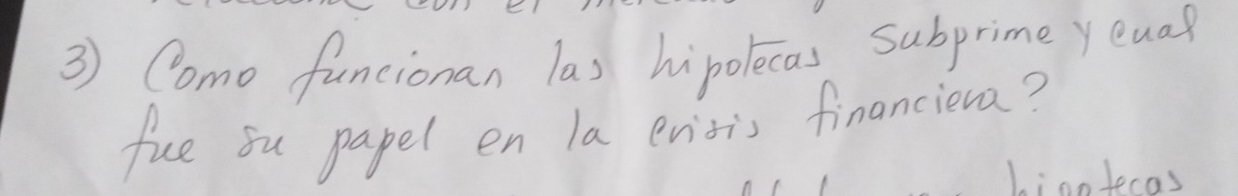 3) Como funcionan las hipotecas subprime y cual
fue su papel en la crisis financiera?
hipotecas